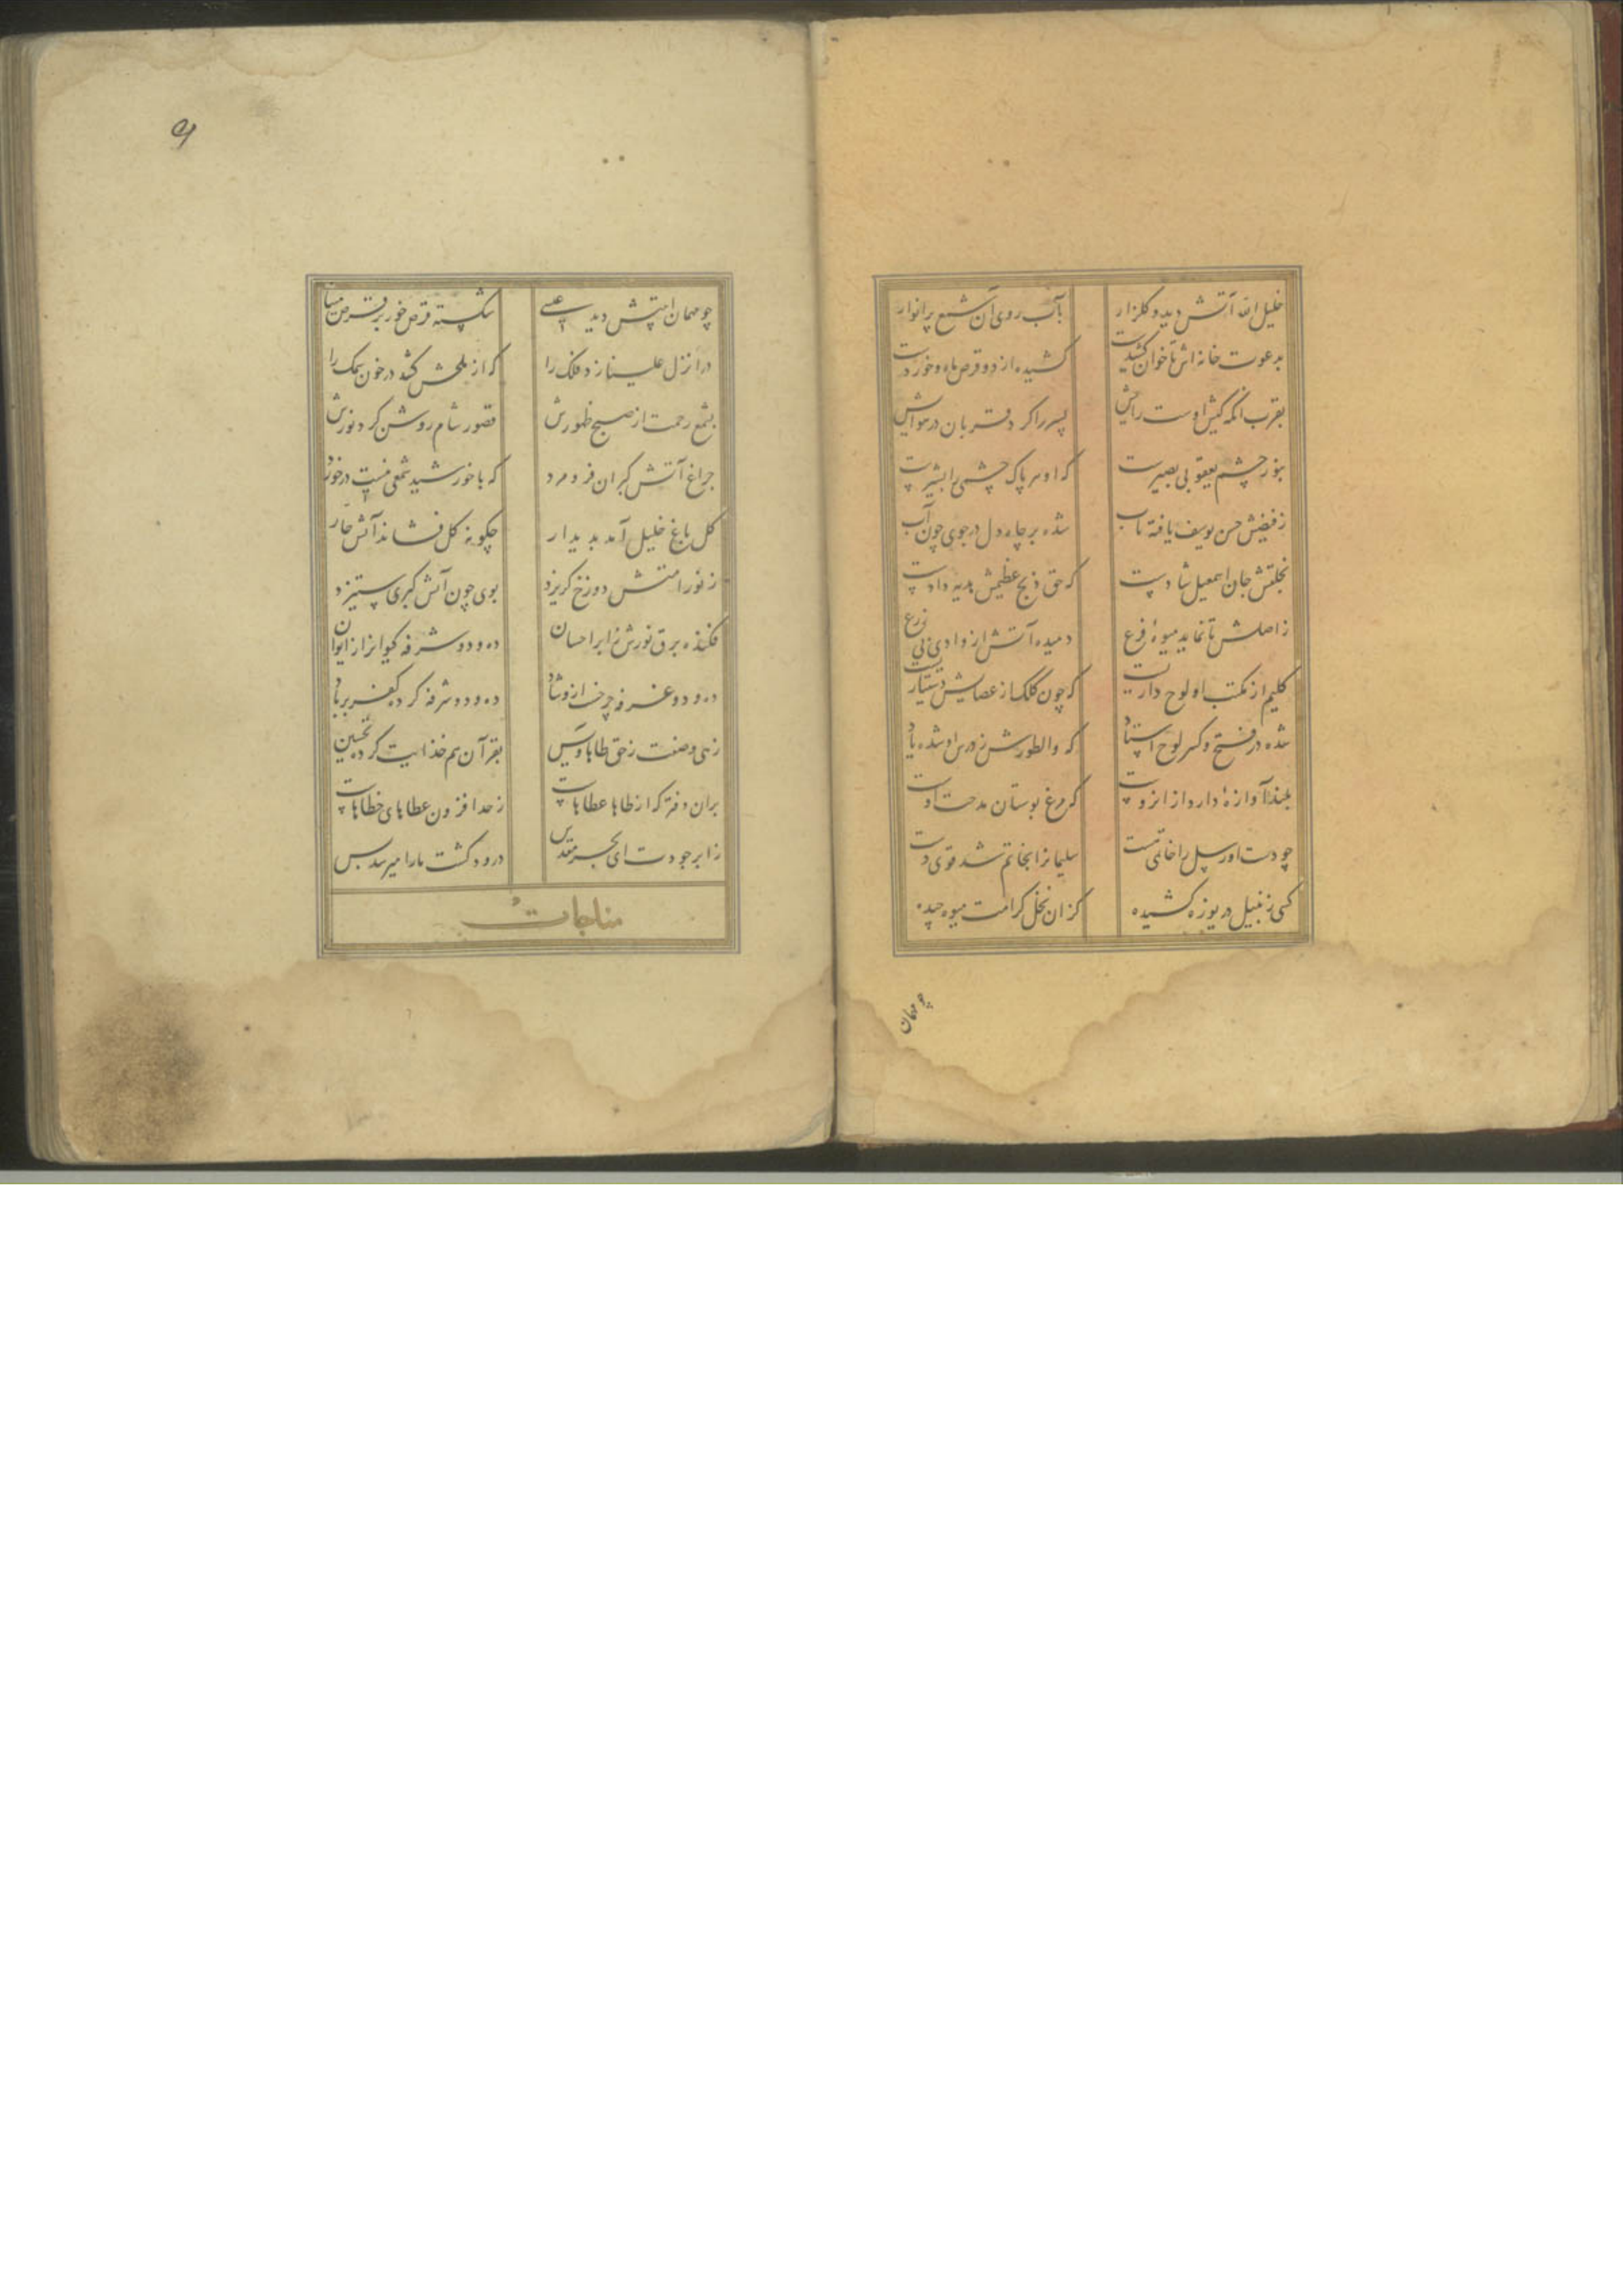 خلیل الله آتش دید و کلزار بآب روی آن شمع پرانوار
بدعوت خانه اش تا خوان کشیدست کشیده از دو قرص ماه و خوردست
بقرب انکه کیش اوست رایش پسر را کرد قربان در هوایش
بنور چشم یعقوبی بصیرست که او هر پاک چشمی را بشیرست
ز فیضش حسن یوسف یافته تاب شده بر چاه دل در جوی چون آب
بخلتش جان اسمعیل شادست که حق ذبح عظیمش بدیه دادست
ز اصلش تا نماید میوهٔ فرع دمیده آتش از وادی ذی زرع
کلیم از مکتب او لوح دارست که چون کلک از عصایش دستیارست
شده در فتح و کسر لوح استاد که والطورش ز درس او شده یاد
بلند آوازهٔ دارد از انروست که مرغ بوستان مدحت اوست
چو دست او رسل را خاتمی هست سلیمانرا بخاتم شد قوی دست
کسی زنبیل دریوزه کشیده کزان نخل کرامت میوه چیده
چو مهمان
۹
چو مهمان امتش دید عیسی شکسته قرص خور بر قرص میسا
در انزل علینا زد فلک را که از ملحش کشد در خون سمک را
بشمع رحمت از صبح ظهورش قصور شام روشن کرد نورش
چراغ آتش کبران فرو مرد که با خورشید شمعی نیست درخورد
کل باغ خلیل آمد بدیدار چکونه کل فشاند آتش خار
ز نور امتش دوزخ کریزد بوی چون آتش کبری ستیزد
فکنده برق نورش ز ابر احسان ده و دو شرفه کیوانرا از ایوان
ده و دو غرفه چرخ از و شاد ده و دو شرفه کرده کفر برباد
زهی وصفت ز حق طاها و یس بقرآن هم خدایت کرده تحسین
بران دفتر که از طاها عطاهاست ز حد افزون عطاهای خطاهاست
ز ابر جودت ای بحر مقدس درود کشت ما را میرسد بس
مناجات